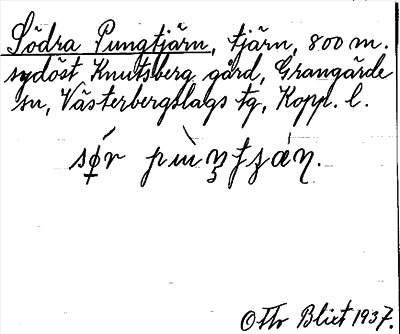 Södra Pungtjärn, tjärn, 800 m.
sydöst Knutsberg gård, Grangärde
sn, Västerbergslags tg, Kopp. l.
Otto Blixt 1937.